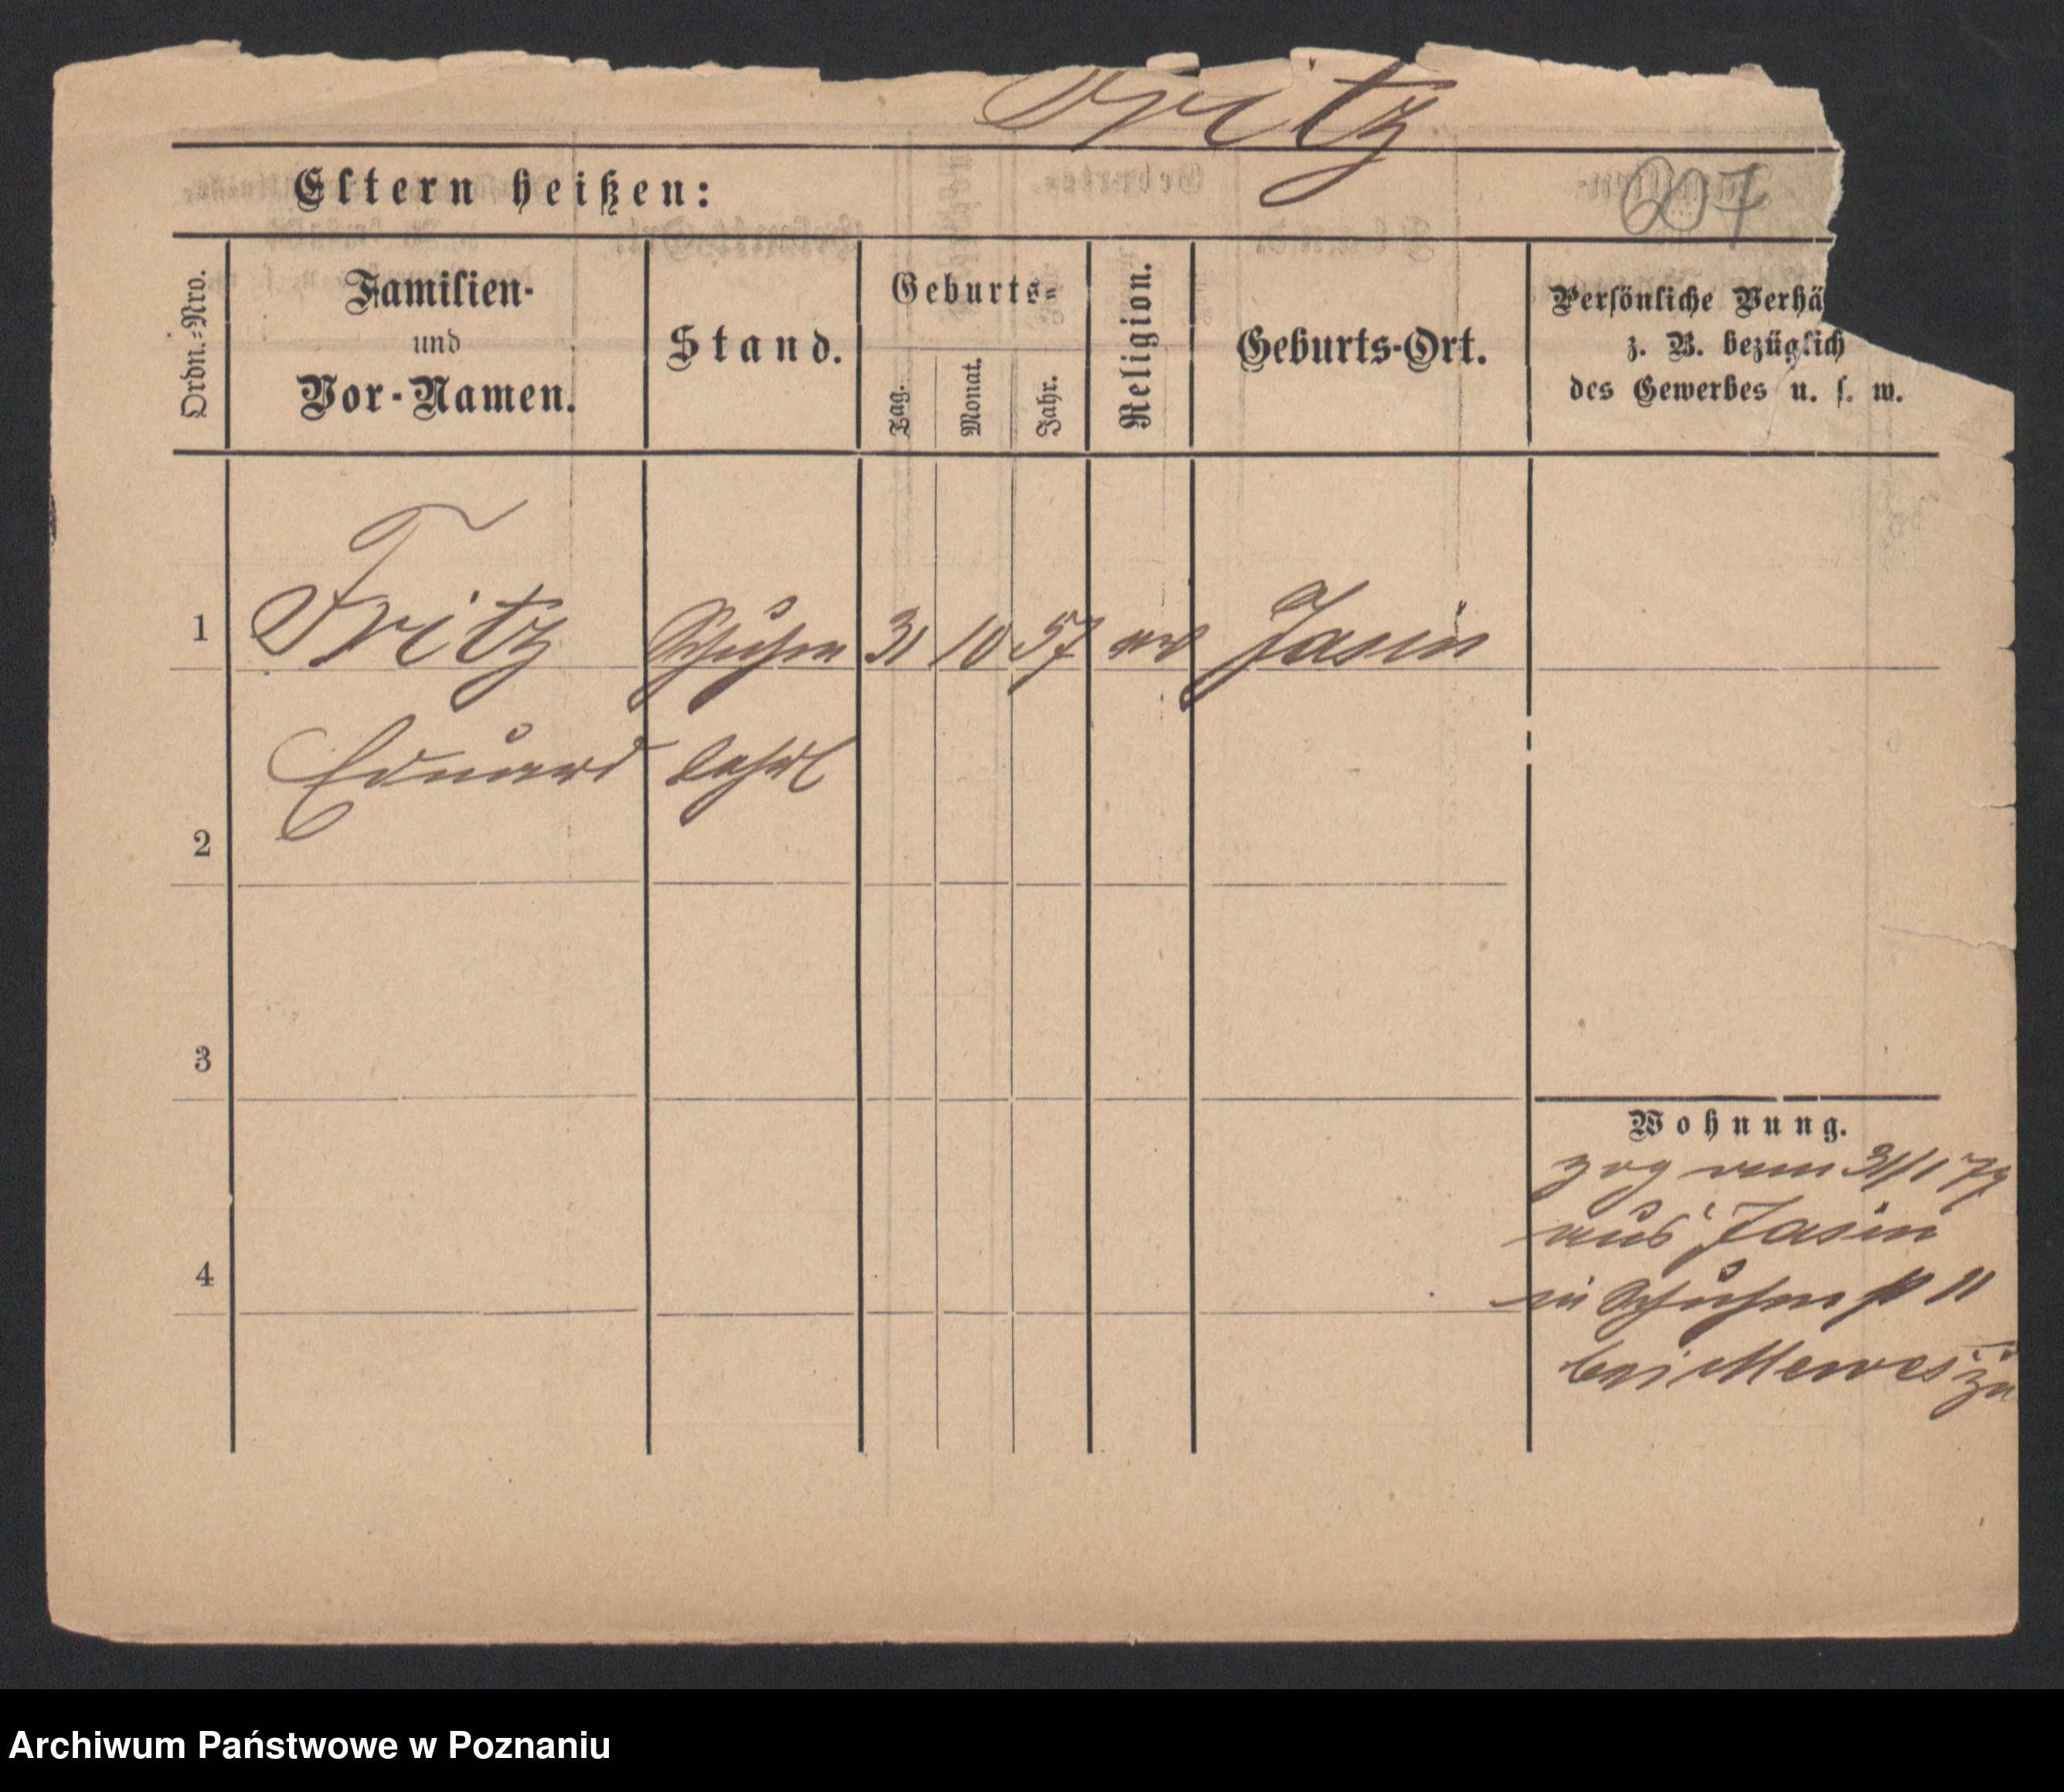 Fritz
607
Eltern heißen:
Ordn.=Nro.
Familien-
und
Vor-Namen.
Stand.
Geburts=
Tag.
Monat.
Jahr.
Religion.
Geburts-Ort.
Persönliche Verhä
z. B. bezüglich
des Gewerbes u. s. w.
1 Fritz Schuhm 31 10 57 Jasin
Eduard
2
3
Wohnung.
zog vom 31/1 79
aus Jasin
4
in
bei Mewes zu
Archiwum Państwowe w Poznaniu